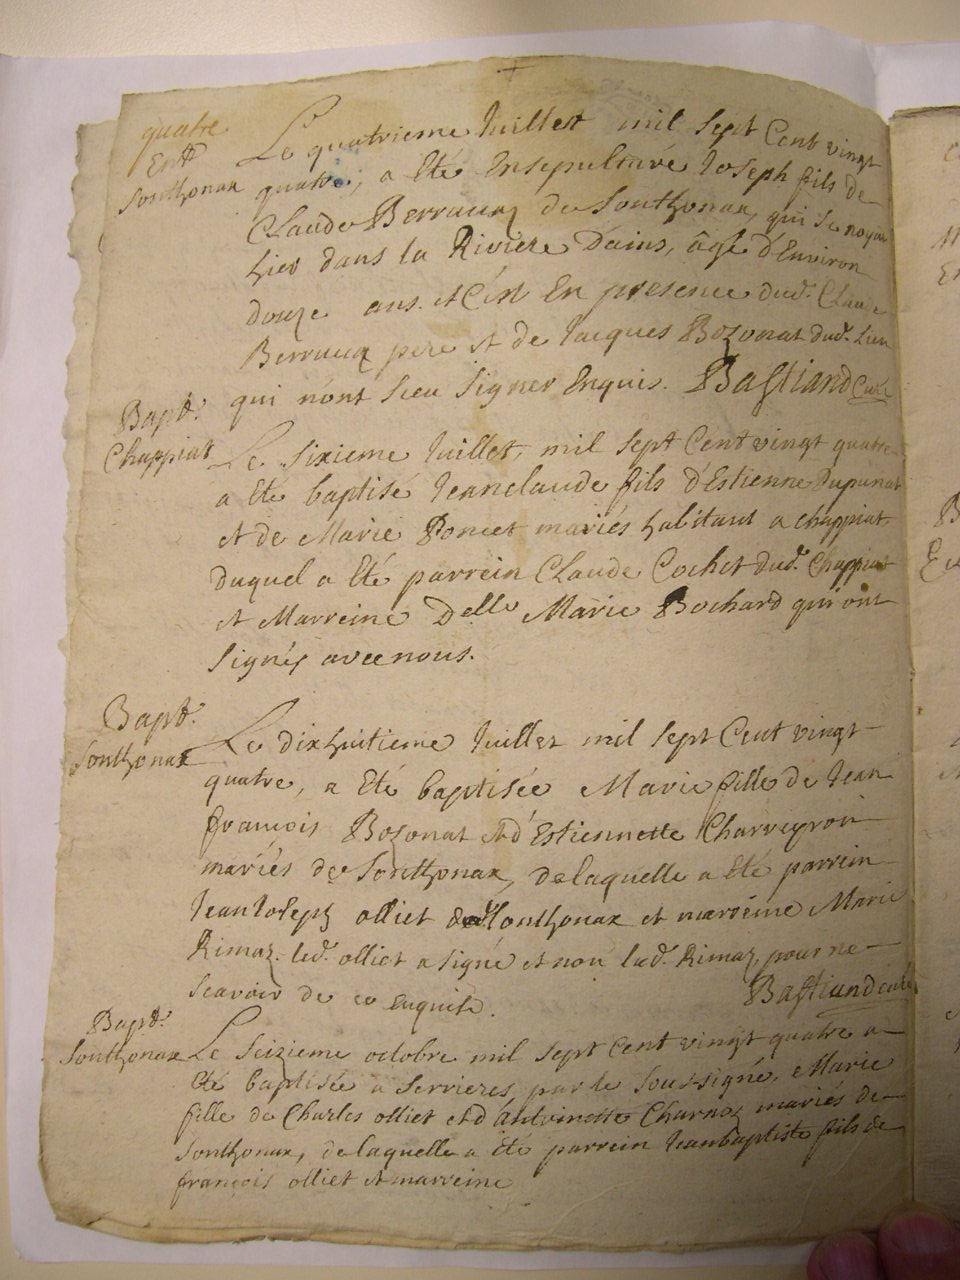 quatre
Ept.
Sonthonax
Le quatrieme Juillett mil sept Cent vingt
quatre, a Eté Ensepulturé Joseph fils de
Claude Berruaz de Sonthonax, qui se noya
hier dans la Riviere D'ains, âgé d'Environ
douze ans. et C'est En presence dud. Claude
Berruaz pere et de Jacques Bozonat dud. Lieu
qui n'ont sceu signer Enquis. Bastiand Curé
Bapt.
Chappiat
Le sixieme Juillet, mil sept Cent vingt quatre
a Eté baptisé Jeanclaude fils d'Estienne Dupunat
et de Marie Poncet mariés habitant a chappiat
duquel a Eté parrein Claude Cochet dud. Chappiat
et Marreine Delle Marie Bochard qui ont
signés avec nous.
Bapt.
Sonthonax
Le dixhuitieme Juillet mil sept Cent vingt
quatre, a Eté baptisée Marie fille de Jean
françois Bozonat et d'Estiennette Charveyron
mariés de Sonthonax, de laquelle a Eté parrein
Jean Joseph olliet dud. Sonthonax et marreine Marie
Rimaz. led. olliet a signé et non lad. Rimaz, pour ne
scavoir de ce enquise. Bastiand curé
Bapt.
Sonthonax
Le seizieme octobre mil sept Cent vingt quatre a
Eté baptisée a Serrieres par le sous-signé, Marie
fille de Charles olliet et d'Antoinette Charnoz mariés de
Sonthonax, de laquelle a été parrein Jeanbaptiste fils de
françois olliet et marreine